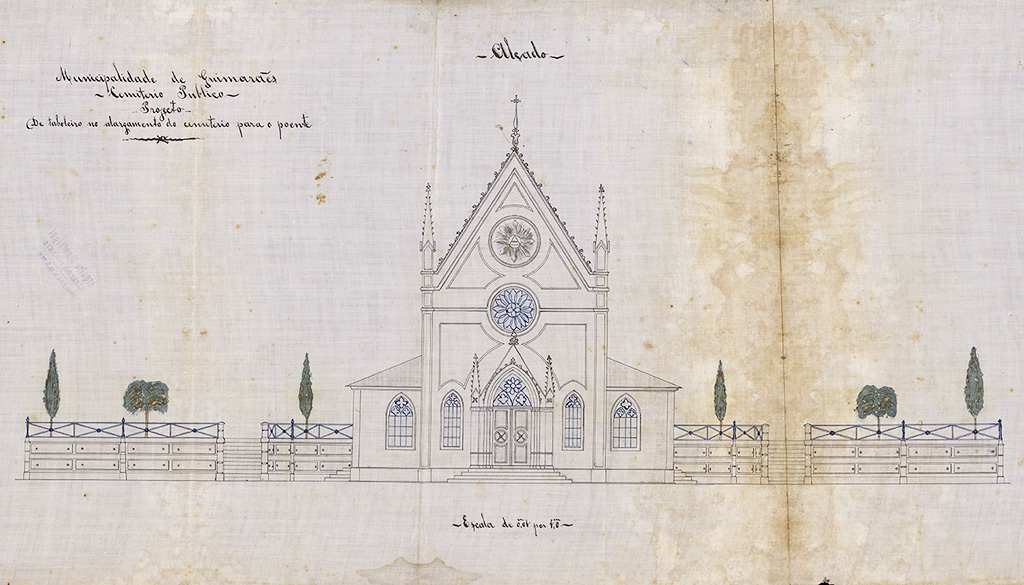 Municipalidade de Guimarães
Cemiterio Publico
Projecto
De taboleiro no alargamento do cemiterio para o poente
Alçado
Escala de 0,01 por 1,0